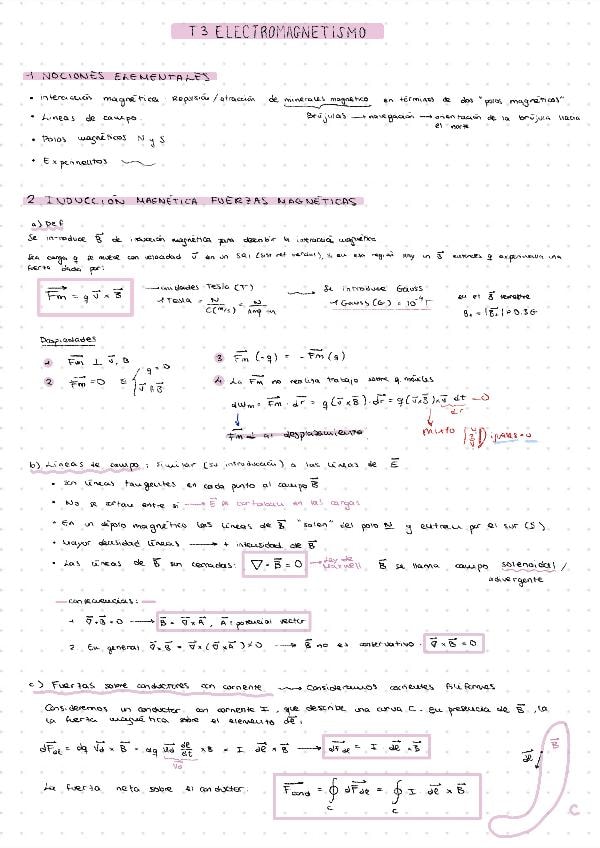 T3 ELECTROMAGNETISMO
1 NOCIONES ELEMENTALES
• Interacción magnética. Repulsión/atracción de minerales magnético en términos de dos "polos magnéticos".
• Lineas de campo. Brújulas → navegación → orientación de la brújula hacia
el norte
• Polos magnéticos N y S
• Experimentos
2 INDUCCIÓN MAGNÉTICA FUERZAS MAGNÉTICAS
a) Def
Se introduce B⃗ de inducción magnética para describir la interacción magnética
Sea carga q se mueve con velocidad v⃗ en un SRI, si en esa región hay un B⃗ entonces q experimenta una
fuerza dada por:
F⃗m = q v⃗ × B⃗ → unidades Tesla (T) → Se introduce Gauss
1 Tesla = N / C(m/s) = N / Amp·m
1 Gauss (G) = 10⁻⁴ T
en el B⃗ terrestre
B₀ = |B⃗₀| ≈ 0.3G
Propiedades
1 F⃗m ⊥ v⃗, B
2 F⃗m = 0 si q = 0
v⃗ ∧ B⃗
3 F⃗m (-q) = - F⃗m (q)
4 La F⃗m no realiza trabajo sobre q móviles
dWm = F⃗m · dr⃗ = q(v⃗×B⃗) · dr⃗ = q(v⃗×B⃗)·v⃗ dt → 0
dr⃗
F⃗m ⊥ al desplazamiento
mixto iguales = 0
b) Líneas de campo: similar (su introducción) a las líneas de E⃗
• Son líneas tangentes en cada punto al campo B⃗
• No se cortan entre si → E⃗ se cortaban en las cargas
• En un dipolo magnético las líneas de B⃗ "salen" del polo N y entran por el sur (S).
• Mayor densidad líneas → + intensidad de B⃗
• Las líneas de B⃗ son cerradas: ∇ · B⃗ = 0 → Ley de Maxwell B⃗ se llama campo solenoidal /
adivergente
consecuencias:
1 ∇⃗·B⃗ = 0 → B⃗ = ∇⃗×A⃗, A⃗: potencial vector
2. En general ∇⃗×B⃗ = ∇⃗×(∇⃗×A⃗) ≠ 0 → B⃗ no es conservativo. ∇⃗×B⃗ = 0
c) Fuerzas sobre conductores con corriente → Consideramos corrientes filiformes
Consideremos un conductor con corriente I, que describe una curva C. En presencia de B⃗, la
la fuerza magnética sobre el elemento dl⃗:
dF⃗dl = dq v⃗d × B⃗ = dq dl⃗/dt × B = I dl⃗ × B⃗ → dF⃗dl = I dl⃗ × B⃗
Vd
dl⃗ B⃗
La fuerza neta sobre el conductor: F⃗cond = ∮ dF⃗dl = ∮ I dl⃗ × B⃗
C C
C